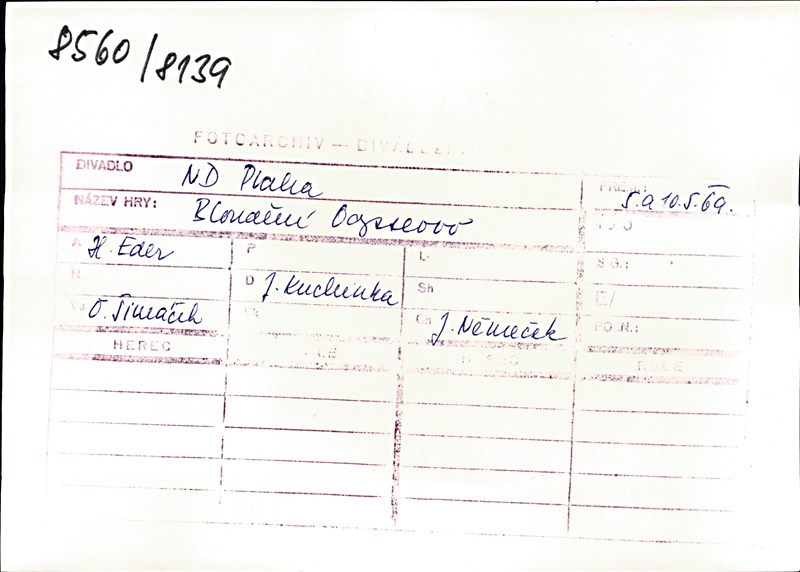 8560/8139
FOTOARCHIV — DIVADELNÍ
DIVADLO ND Praha
5. a 10.5.69.
NÁZEV HRY: Bloudění Odysseovo
A H. Eder P L SG.:
R D J. Kuchinka Sh
O. Šimáček Ch J. Němeček PO.N.:
HEREC ROLE HEREC ROLE